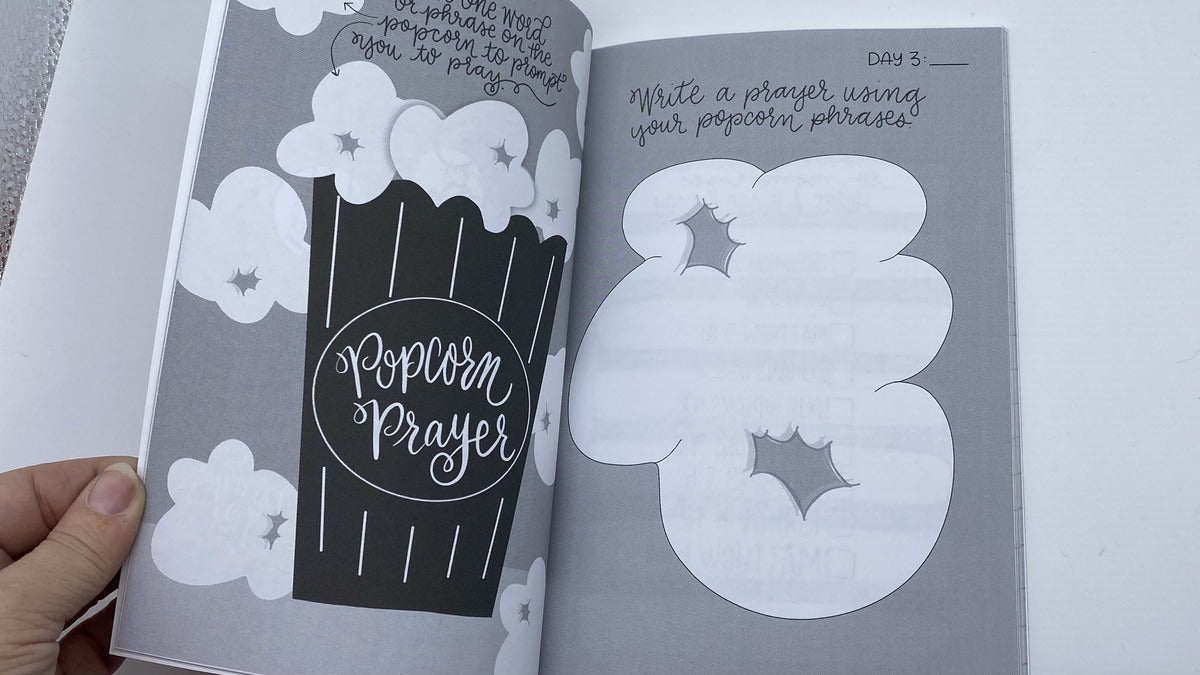 one word
or phrase on the
popcorn to prompt
you to pray.
Popcorn
Prayer
DAY 3:
Write a prayer using
your popcorn phrases.